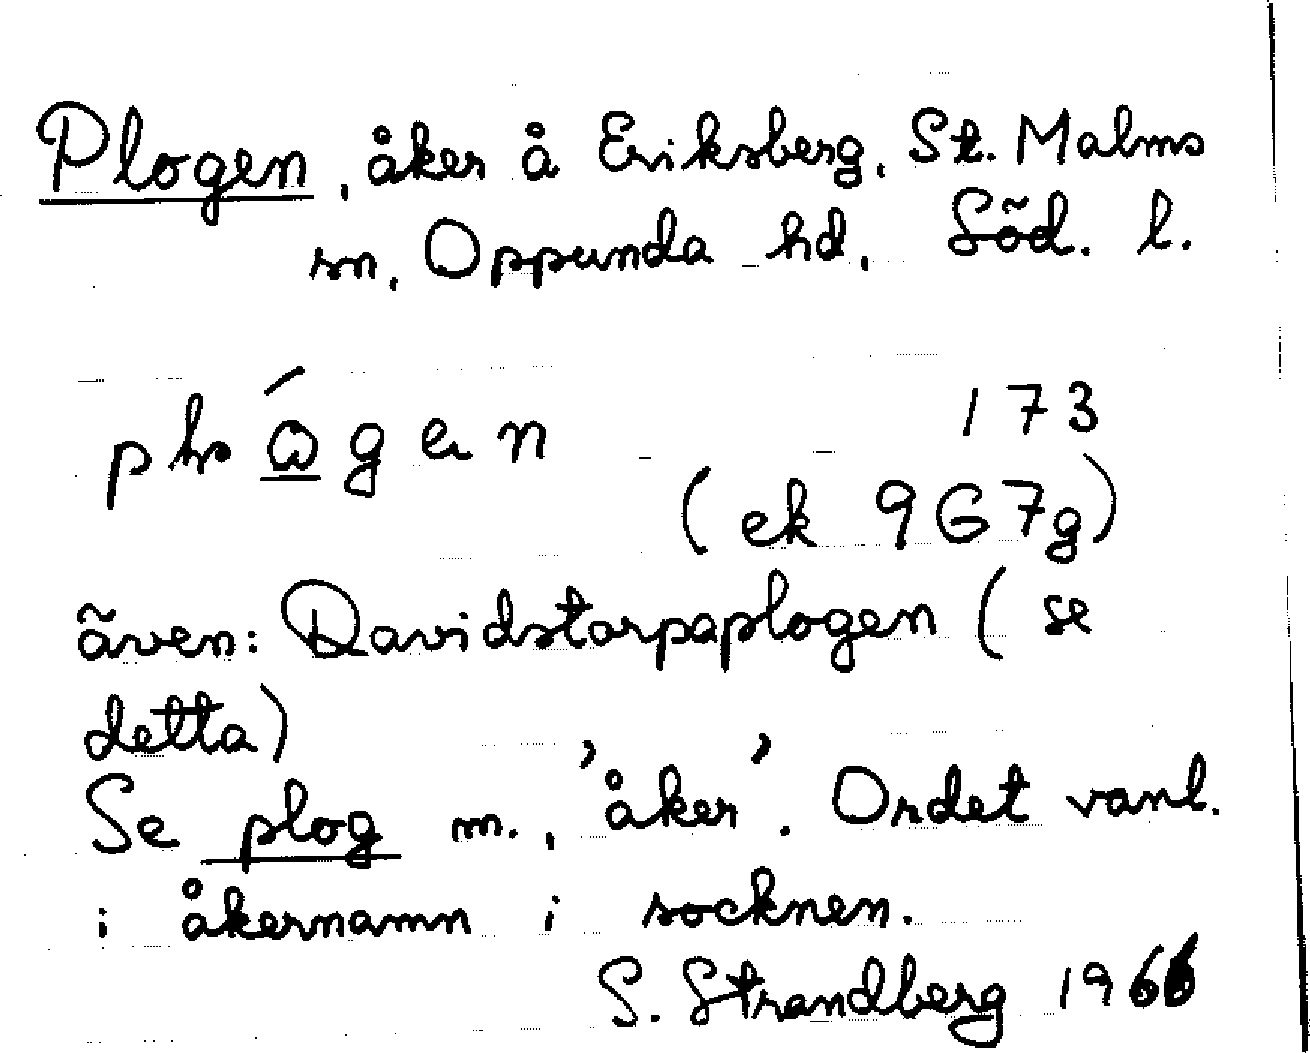 Plogen, åker å Eriksberg, St. Malms
sn, Oppunda hd, Söd. l.
173
(ek 9G7g)
även: Davidstorpaplogen (se
detta)
Se plog m., 'åker'. Ordet vanl.
i åkernamn i socknen.
S. Strandberg 1966